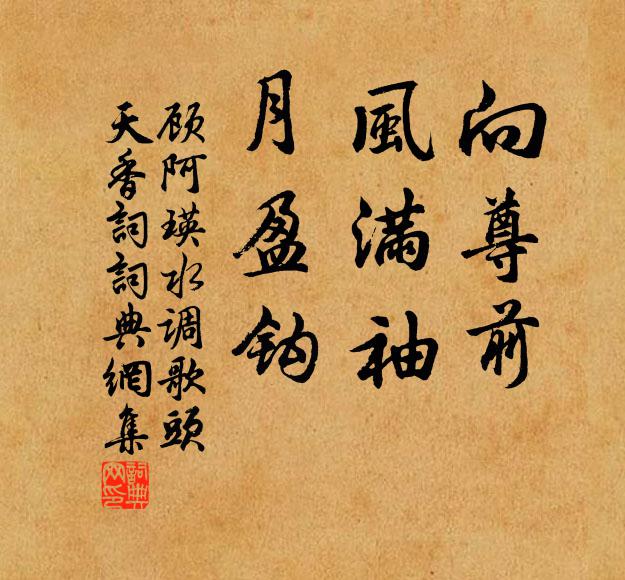 向尊前
風滿袖
月盈鈎
顾阿瑛水调歌頭
天香詞詞典網集
詞典网印